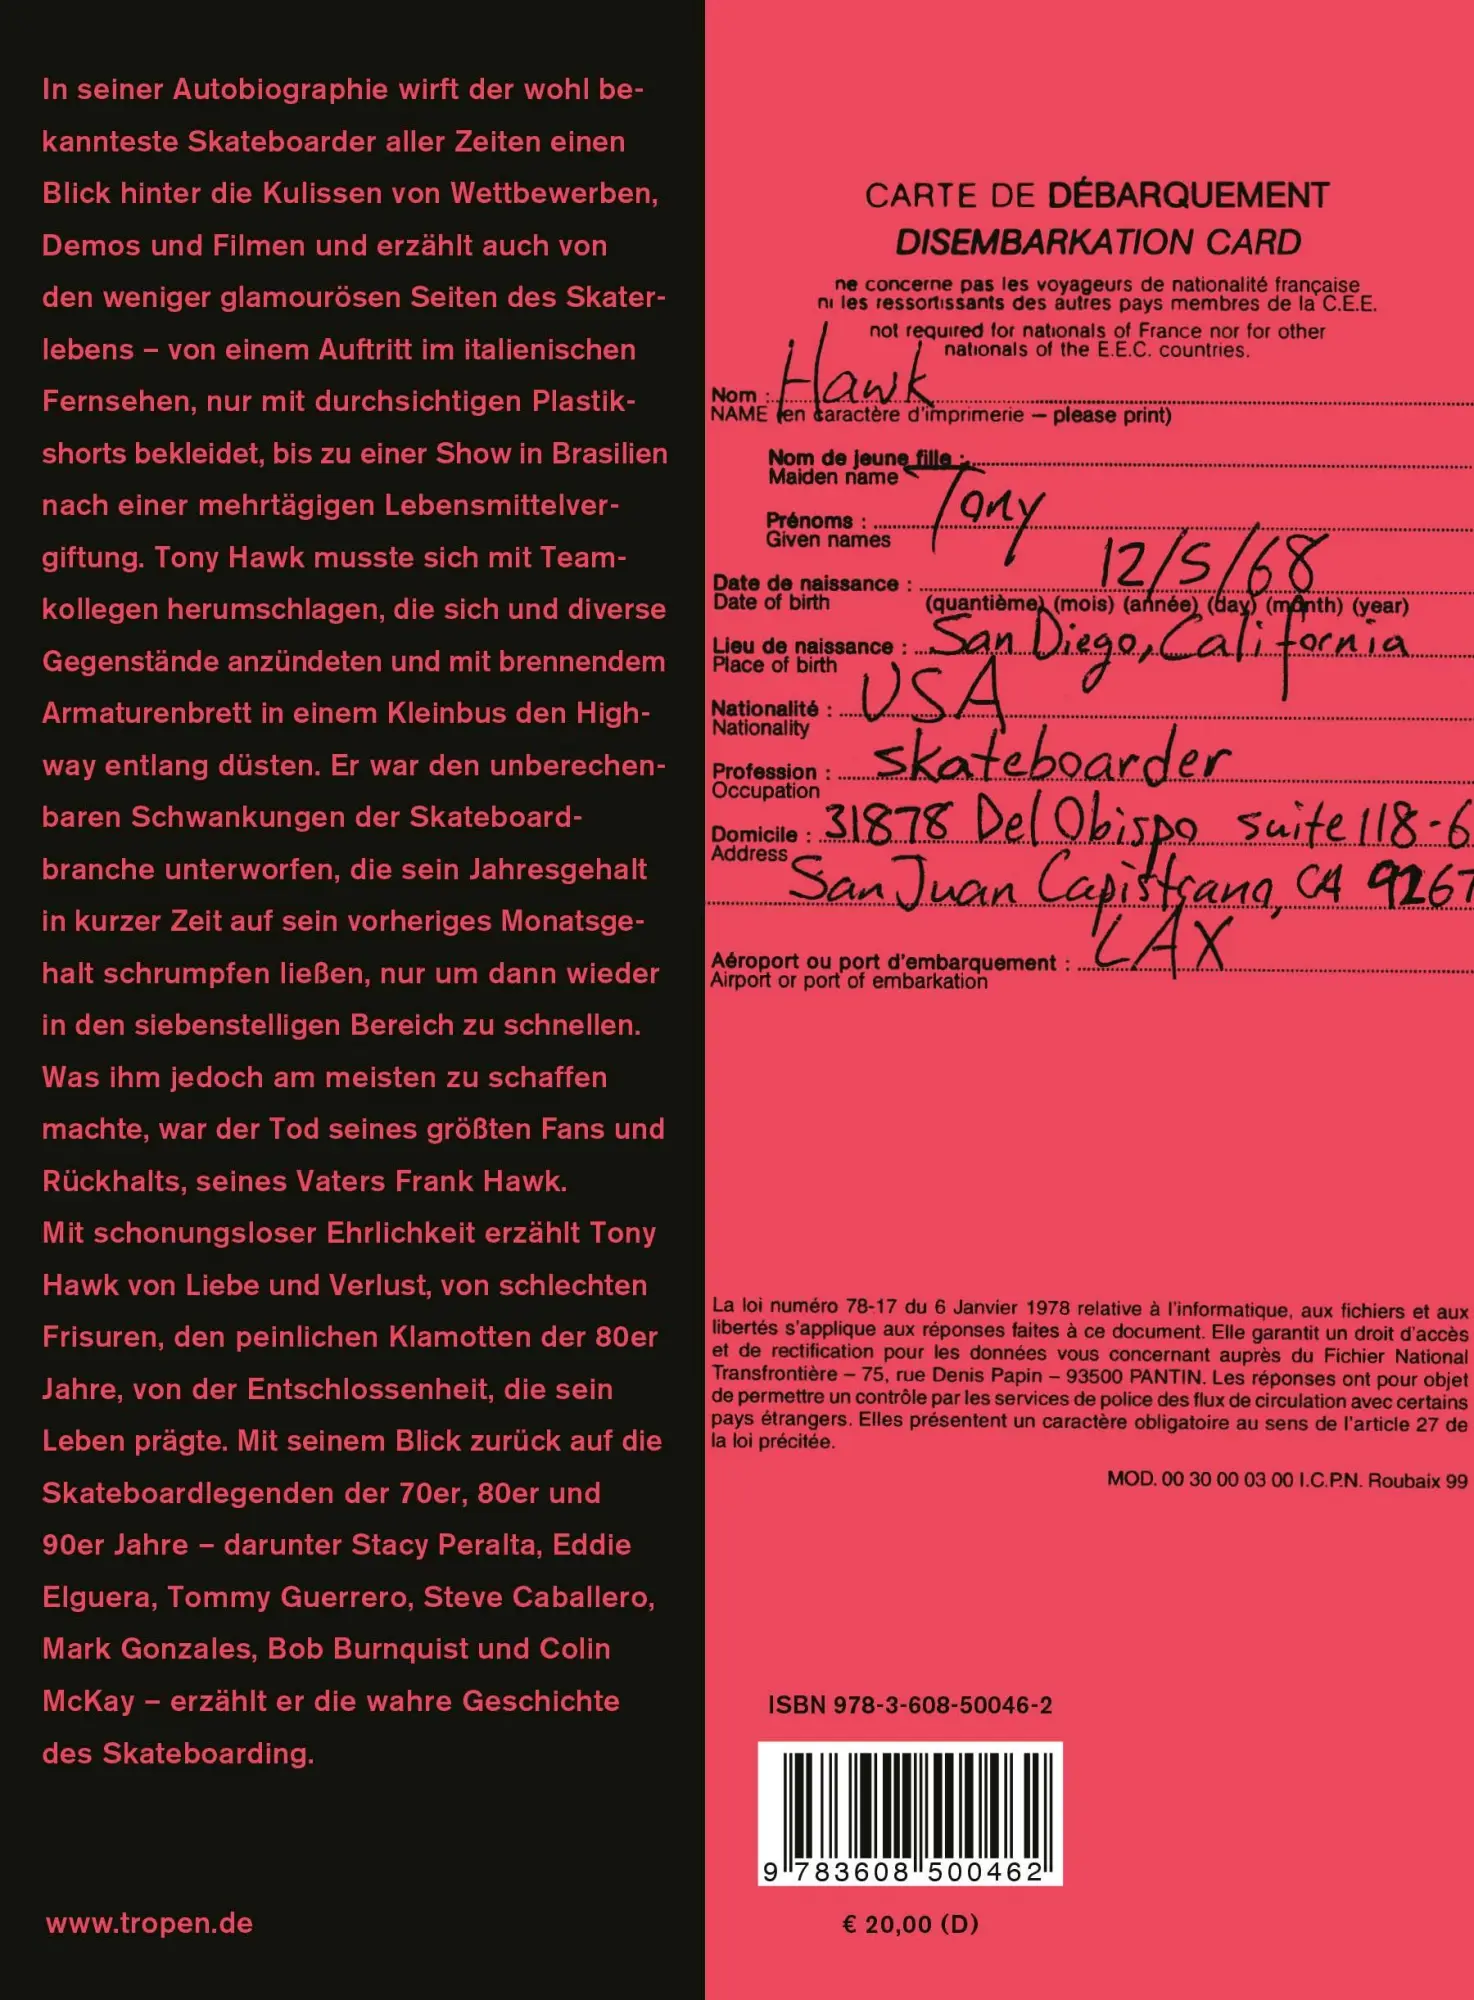 In seiner Autobiographie wirft der wohl be-
kannteste Skateboarder aller Zeiten einen
Blick hinter die Kulissen von Wettbewerben,
Demos und Filmen und erzählt auch von
den weniger glamourösen Seiten des Skater-
lebens – von einem Auftritt im italienischen
Fernsehen, nur mit durchsichtigen Plastik-
shorts bekleidet, bis zu einer Show in Brasilien
nach einer mehrtägigen Lebensmittelver-
giftung. Tony Hawk musste sich mit Team-
kollegen herumschlagen, die sich und diverse
Gegenstände anzündeten und mit brennendem
Armaturenbrett in einem Kleinbus den High-
way entlang düsten. Er war den unberechen-
baren Schwankungen der Skateboard-
branche unterworfen, die sein Jahresgehalt
in kurzer Zeit auf sein vorheriges Monatsge-
halt schrumpfen ließen, nur um dann wieder
in den siebenstelligen Bereich zu schnellen.
Was ihm jedoch am meisten zu schaffen
machte, war der Tod seines größten Fans und
Rückhalts, seines Vaters Frank Hawk.
Mit schonungsloser Ehrlichkeit erzählt Tony
Hawk von Liebe und Verlust, von schlechten
Frisuren, den peinlichen Klamotten der 80er
Jahre, von der Entschlossenheit, die sein
Leben prägte. Mit seinem Blick zurück auf die
Skateboardlegenden der 70er, 80er und
90er Jahre – darunter Stacy Peralta, Eddie
Elguera, Tommy Guerrero, Steve Caballero,
Mark Gonzales, Bob Burnquist und Colin
McKay – erzählt er die wahre Geschichte
des Skateboarding.
www.tropen.de
CARTE DE DÉBARQUEMENT
DISEMBARKATION CARD
ne concerne pas les voyageurs de nationalité française
ni les ressortissants des autres pays membres de la C.E.E.
not required for nationals of France nor for other
nationals of the E.E.C. countries.
Nom : Hawk
NAME (en caractère d'imprimerie – please print)
Nom de jeune fille :
Maiden name
Prénoms : Tony
Given names
Date de naissance : 12/5/68
Date of birth (quantième) (mois) (année) (day) (month) (year)
Lieu de naissance : San Diego, California
Place of birth
Nationalité : USA
Nationality
Profession : skateboarder
Occupation
Domicile : 31878 Del Obispo suite 118-6
Address San Juan Capistrano, CA 9267
Aéroport ou port d'embarquement : LAX
Airport or port of embarkation
La loi numéro 78-17 du 6 Janvier 1978 relative à l'informatique, aux fichiers et aux
libertés s'applique aux réponses faites à ce document. Elle garantit un droit d'accès
et de rectification pour les données vous concernant auprès du Fichier National
Transfrontière – 75, rue Denis Papin – 93500 PANTIN. Les réponses ont pour objet
de permettre un contrôle par les services de police des flux de circulation avec certains
pays étrangers. Elles présentent un caractère obligatoire au sens de l'article 27 de
la loi précitée.
MOD. 00 30 00 03 00 I.C.P.N. Roubaix 99
ISBN 978-3-608-50046-2
9 783608 500462
€ 20,00 (D)